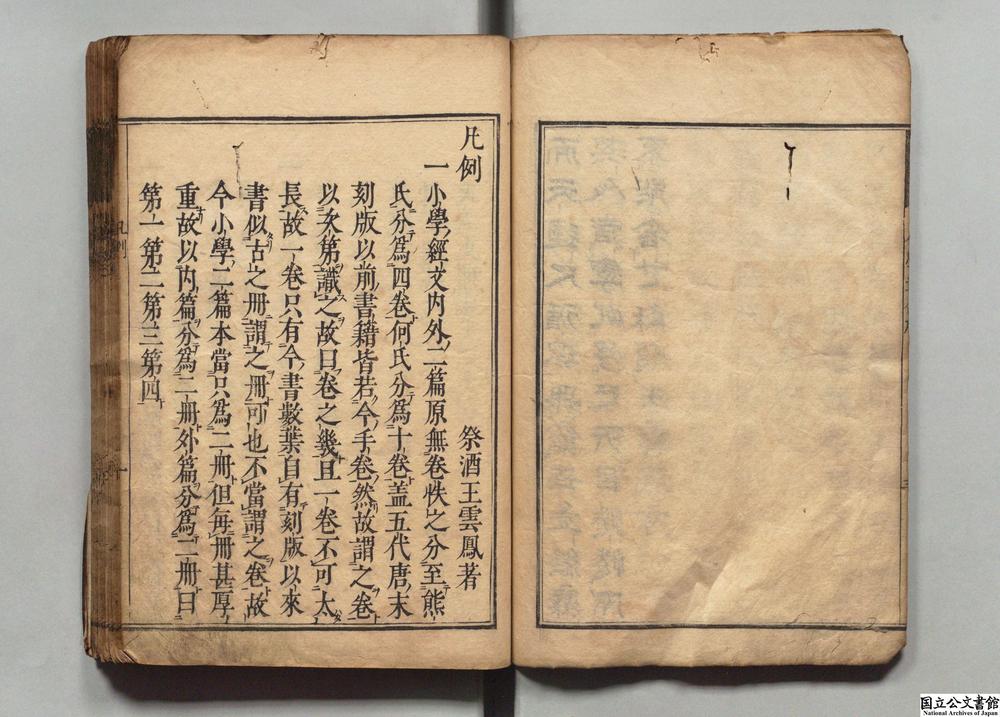 凡例
祭酒王雲鳳著
一小學經文内外二篇原無卷帙之分至熊
氏分爲四卷何氏分爲十卷盖五代唐末
刻版以前書籍皆若今手卷然故謂之卷
以次第識之故曰卷之幾且一卷不可太
長故一卷只有今書數葉自有刻版以來
書似古之册謂之册可也不當謂之卷故
今小學二篇本當只爲二册但每册甚厚
重故以内篇分爲二册外篇分爲二册曰
第一第二第三第四
凡例
国立公文書館
National Archives of Japan